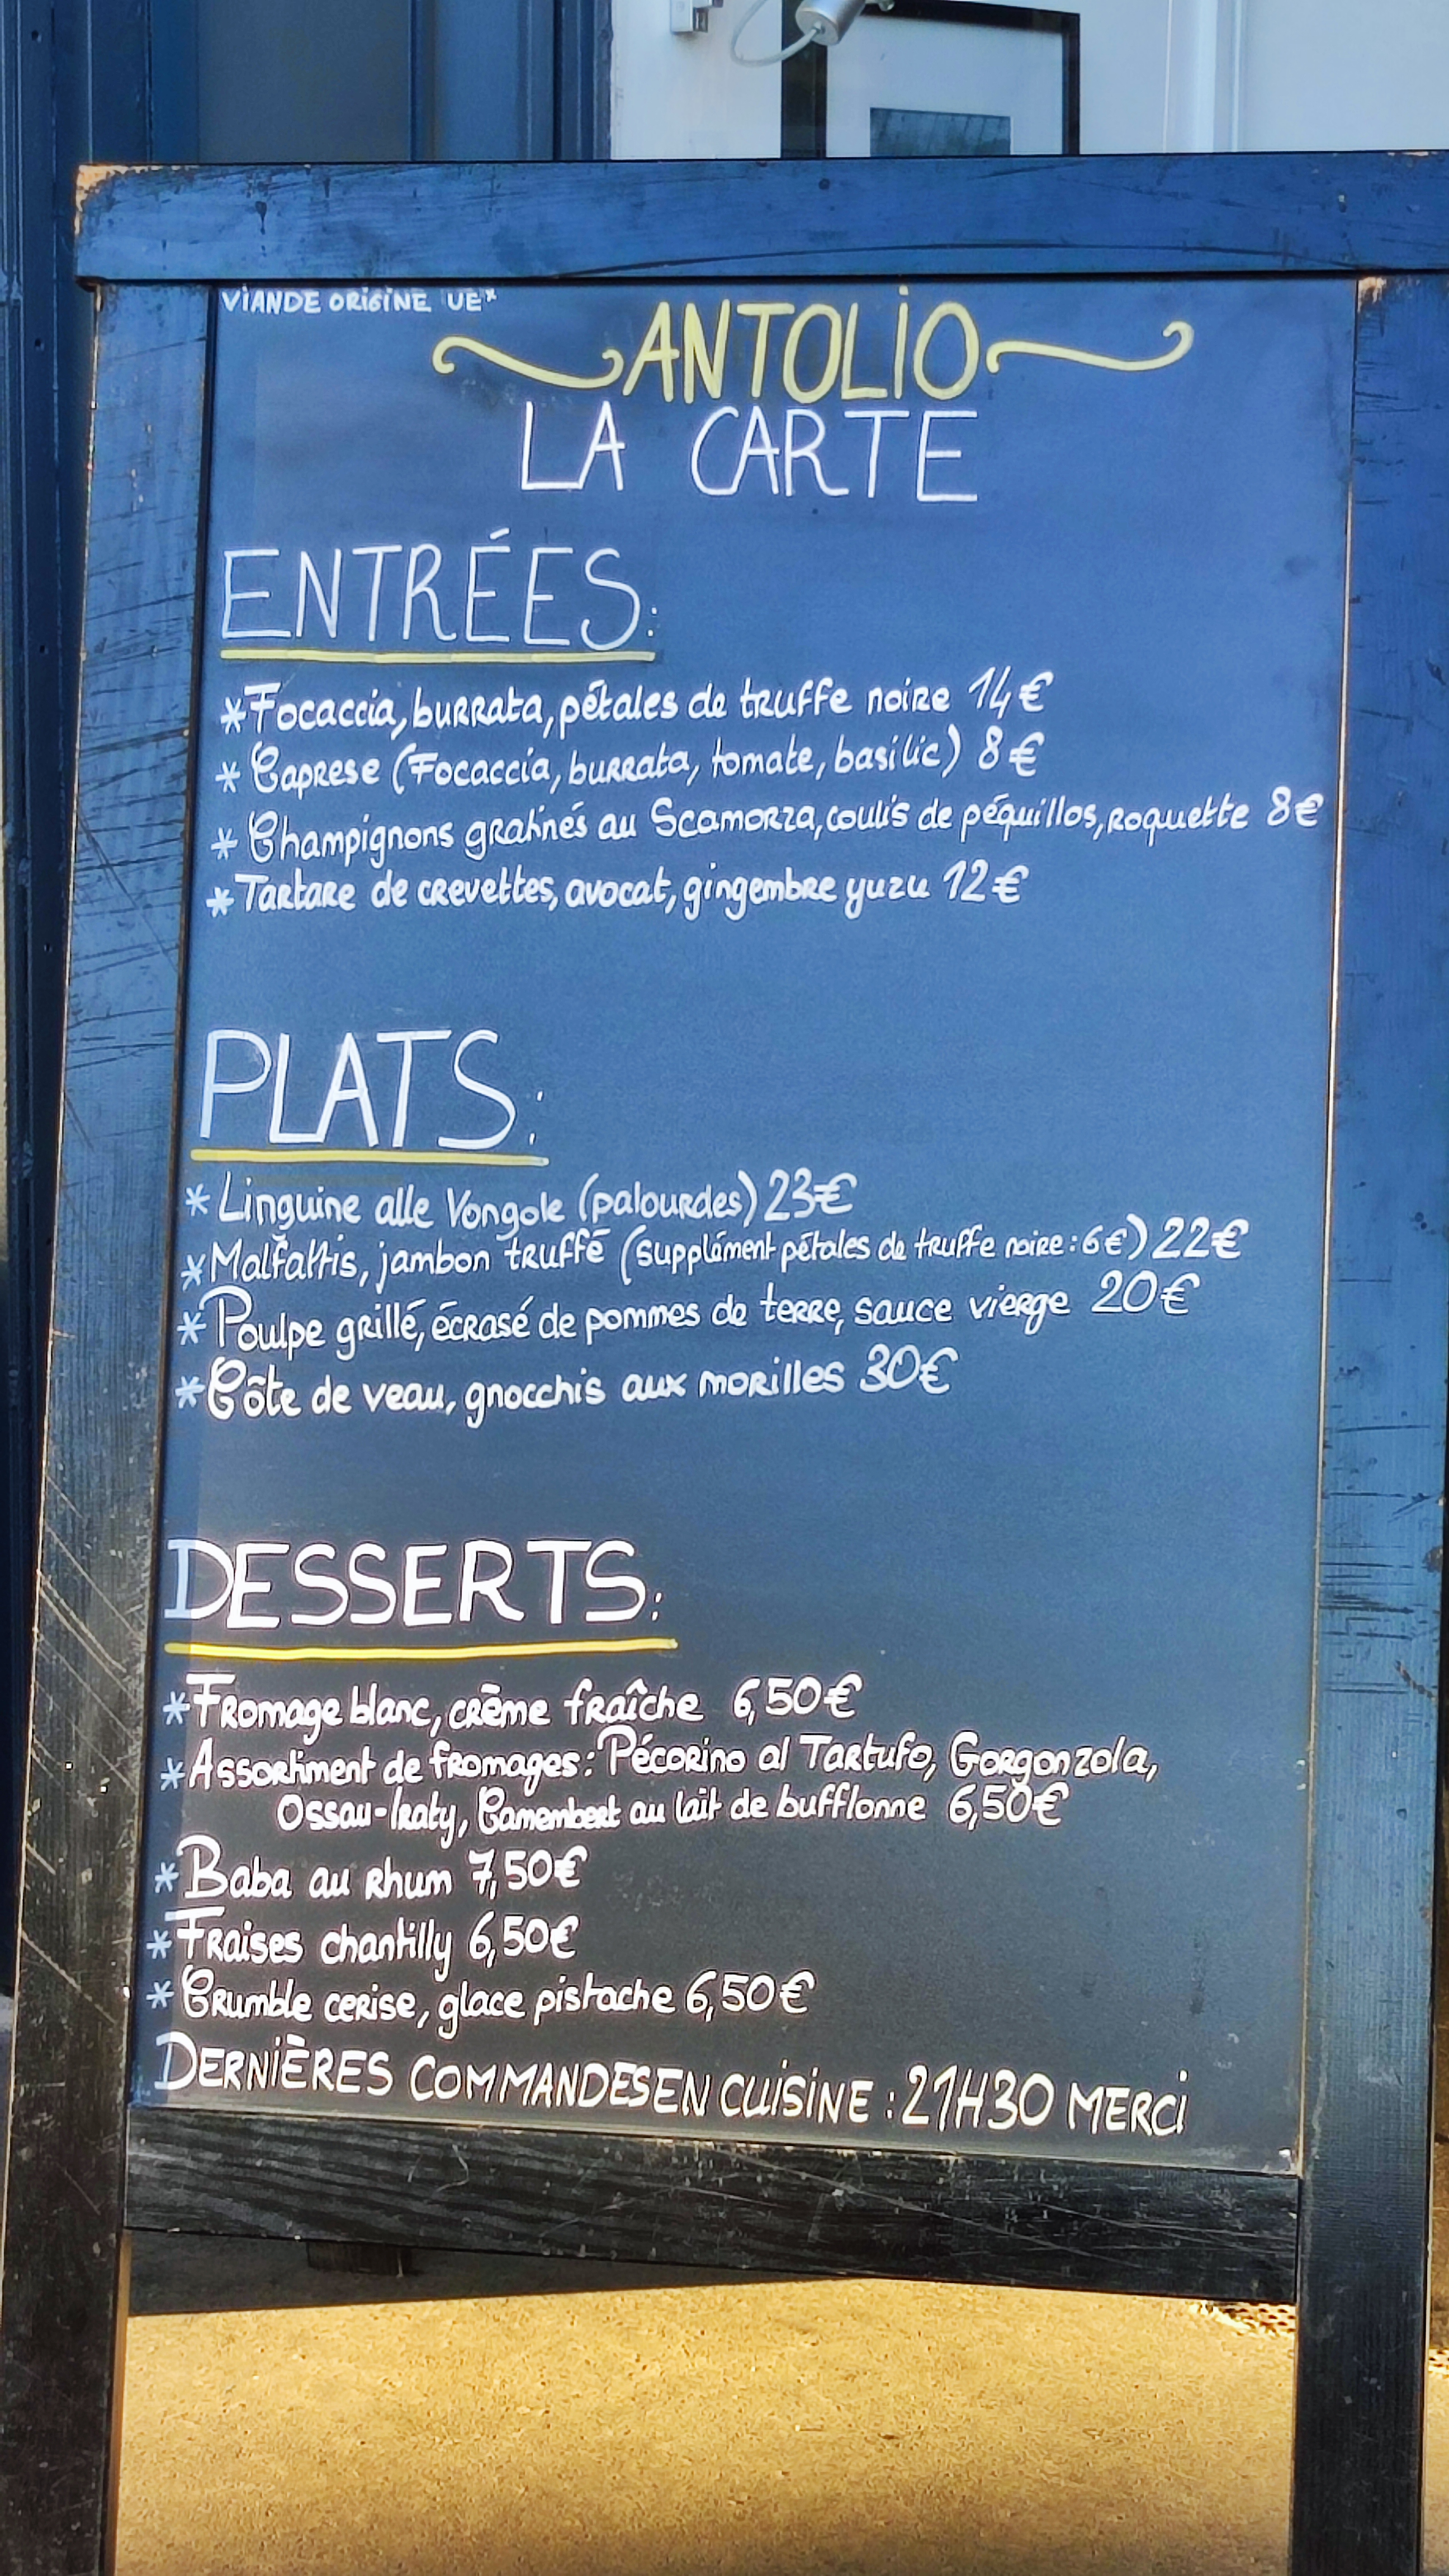 VIANDE ORIGINE UE*
ANTOLIO
LA CARTE
ENTRÉES:
*Focaccia, burrata, pétales de truffe noire 14€
* Caprese (Focaccia, burrata, tomate, basilic) 8€
* Champignons gratinés au Scamorza, coulis de péquillos, roquette 8€
* Tartare de crevettes, avocat, gingembre yuzu 12€
PLATS:
* Linguine alle Vongole (palourdes) 23€
* Malfattis, jambon truffé (supplément pétales de truffe noire : 6€) 22€
* Poulpe grillé, écrasé de pommes de terre, sauce vierge 20€
* Côte de veau, gnocchis aux morilles 30€
DESSERTS:
* Fromage blanc, crème fraîche 6,50€
* Assortiment de fromages: Pécorino al Tartufo, Gorgonzola,
Ossau-Iraty, Camembert au lait de bufflonne 6,50€
* Baba au rhum 7,50€
* Fraises chantilly 6,50€
* Crumble cerise, glace pistache 6,50€
DERNIÈRES COMMANDES EN CUISINE : 21H30 MERCI